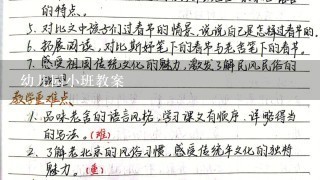 的特点。
5. 对比文中孩子们过春节的情景,说说自己是怎样过春节的。
6. 拓展阅读,对比斯妤笔下的春节与老舍笔下的春节。
7. 感受祖国传统文化的魅力,激发了解民风民俗的
幼儿园小班教案
教学重难点
1. 品味老舍的语言风格,学习课文有顺序、详略得当
的写法。(难)
2. 了解老北京的风俗习惯,感受传统年文化的独特
魅力。(重)